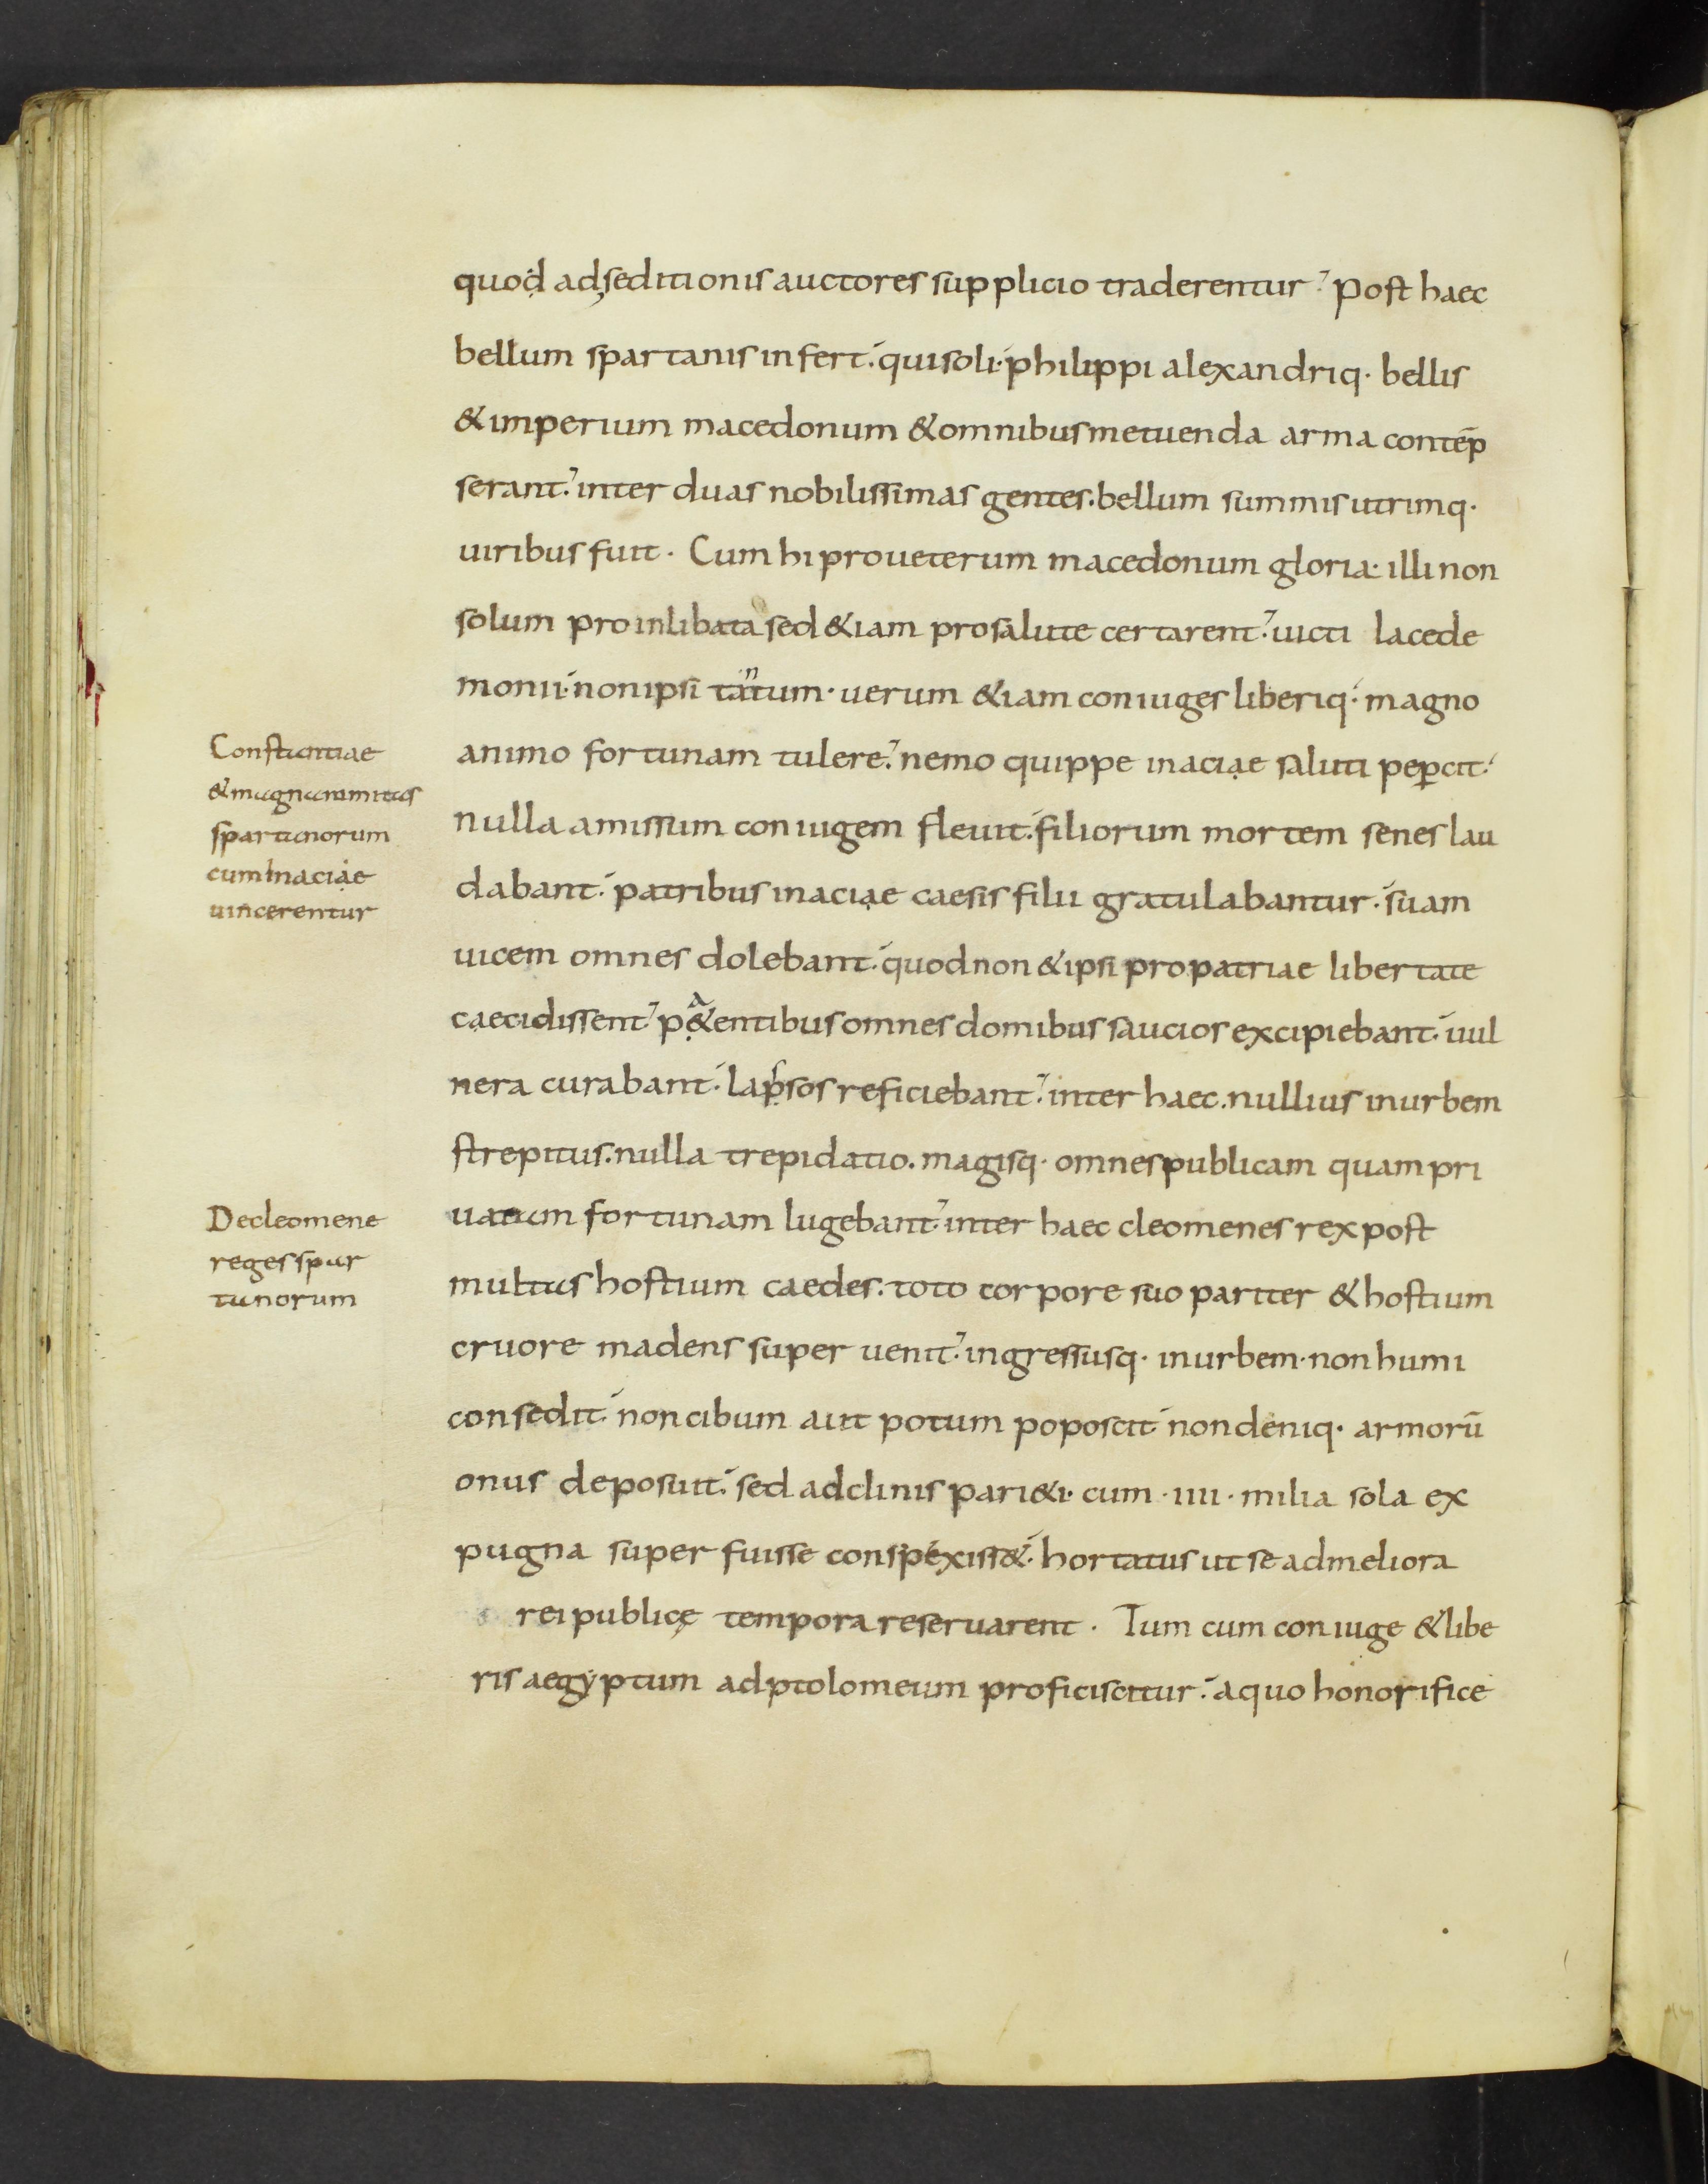 quod adseditionis auctores supplicio traderentur. Post haec
bellum spartanis infert. qui soli. philippi alexandriq· bellis
& imperium macedonum & omnibus metuenda arma contēp
serant. inter duas nobilissimas gentes. bellum summis utrimq·
uiribus fuit. Cum hi pro ueterum macedonum gloria. illi non
solum pro inlibata sed &iam pro salute certarent. uicti lacede
monii. non ipsi tantum. uerum &iam coniuges liberiq· magno
Constantiae
& magnanimitas
spartanorum
cum inaciae
uincerentur
animo fortunam tulere. nemo quippe inaciae saluti peꝑcit.
nulla amissum coniugem fleuit. filiorum mortem senes lau
dabant. patribus inaciae caesis filii gratulabantur. suam
uicem omnes dolebant. quod non & ipsi pro patriae libertate
caecidissent. pa&entibus omnes domibus saucios excipiebant. uul
nera curabant. lapsos reficiebant. inter haec. nullius inurbem
strepitus. nulla trepidatio. magisq· omnes publicam quam pri
Decleomene
reges spar
tanorum
uatam fortunam lugebant. inter haec cleomenes rex post
multas hostium caedes. toto corpore suo pariter & hostium
cruore madens super uenit. ingressusq· inurbem. non humi
consedit. non cibum aut potum poposcit. non deniq· armorū
onus deposuit. sed adclinis pari&i. cum ·IIII· milia sola ex
pugna super fuisse conspexiss&. hortatus ut se admeliora
rei publicę tempora reseruarent. Tum cum coniuge & libe
ris aegyptum adptolomeum proficiscitur. aquo honorifice